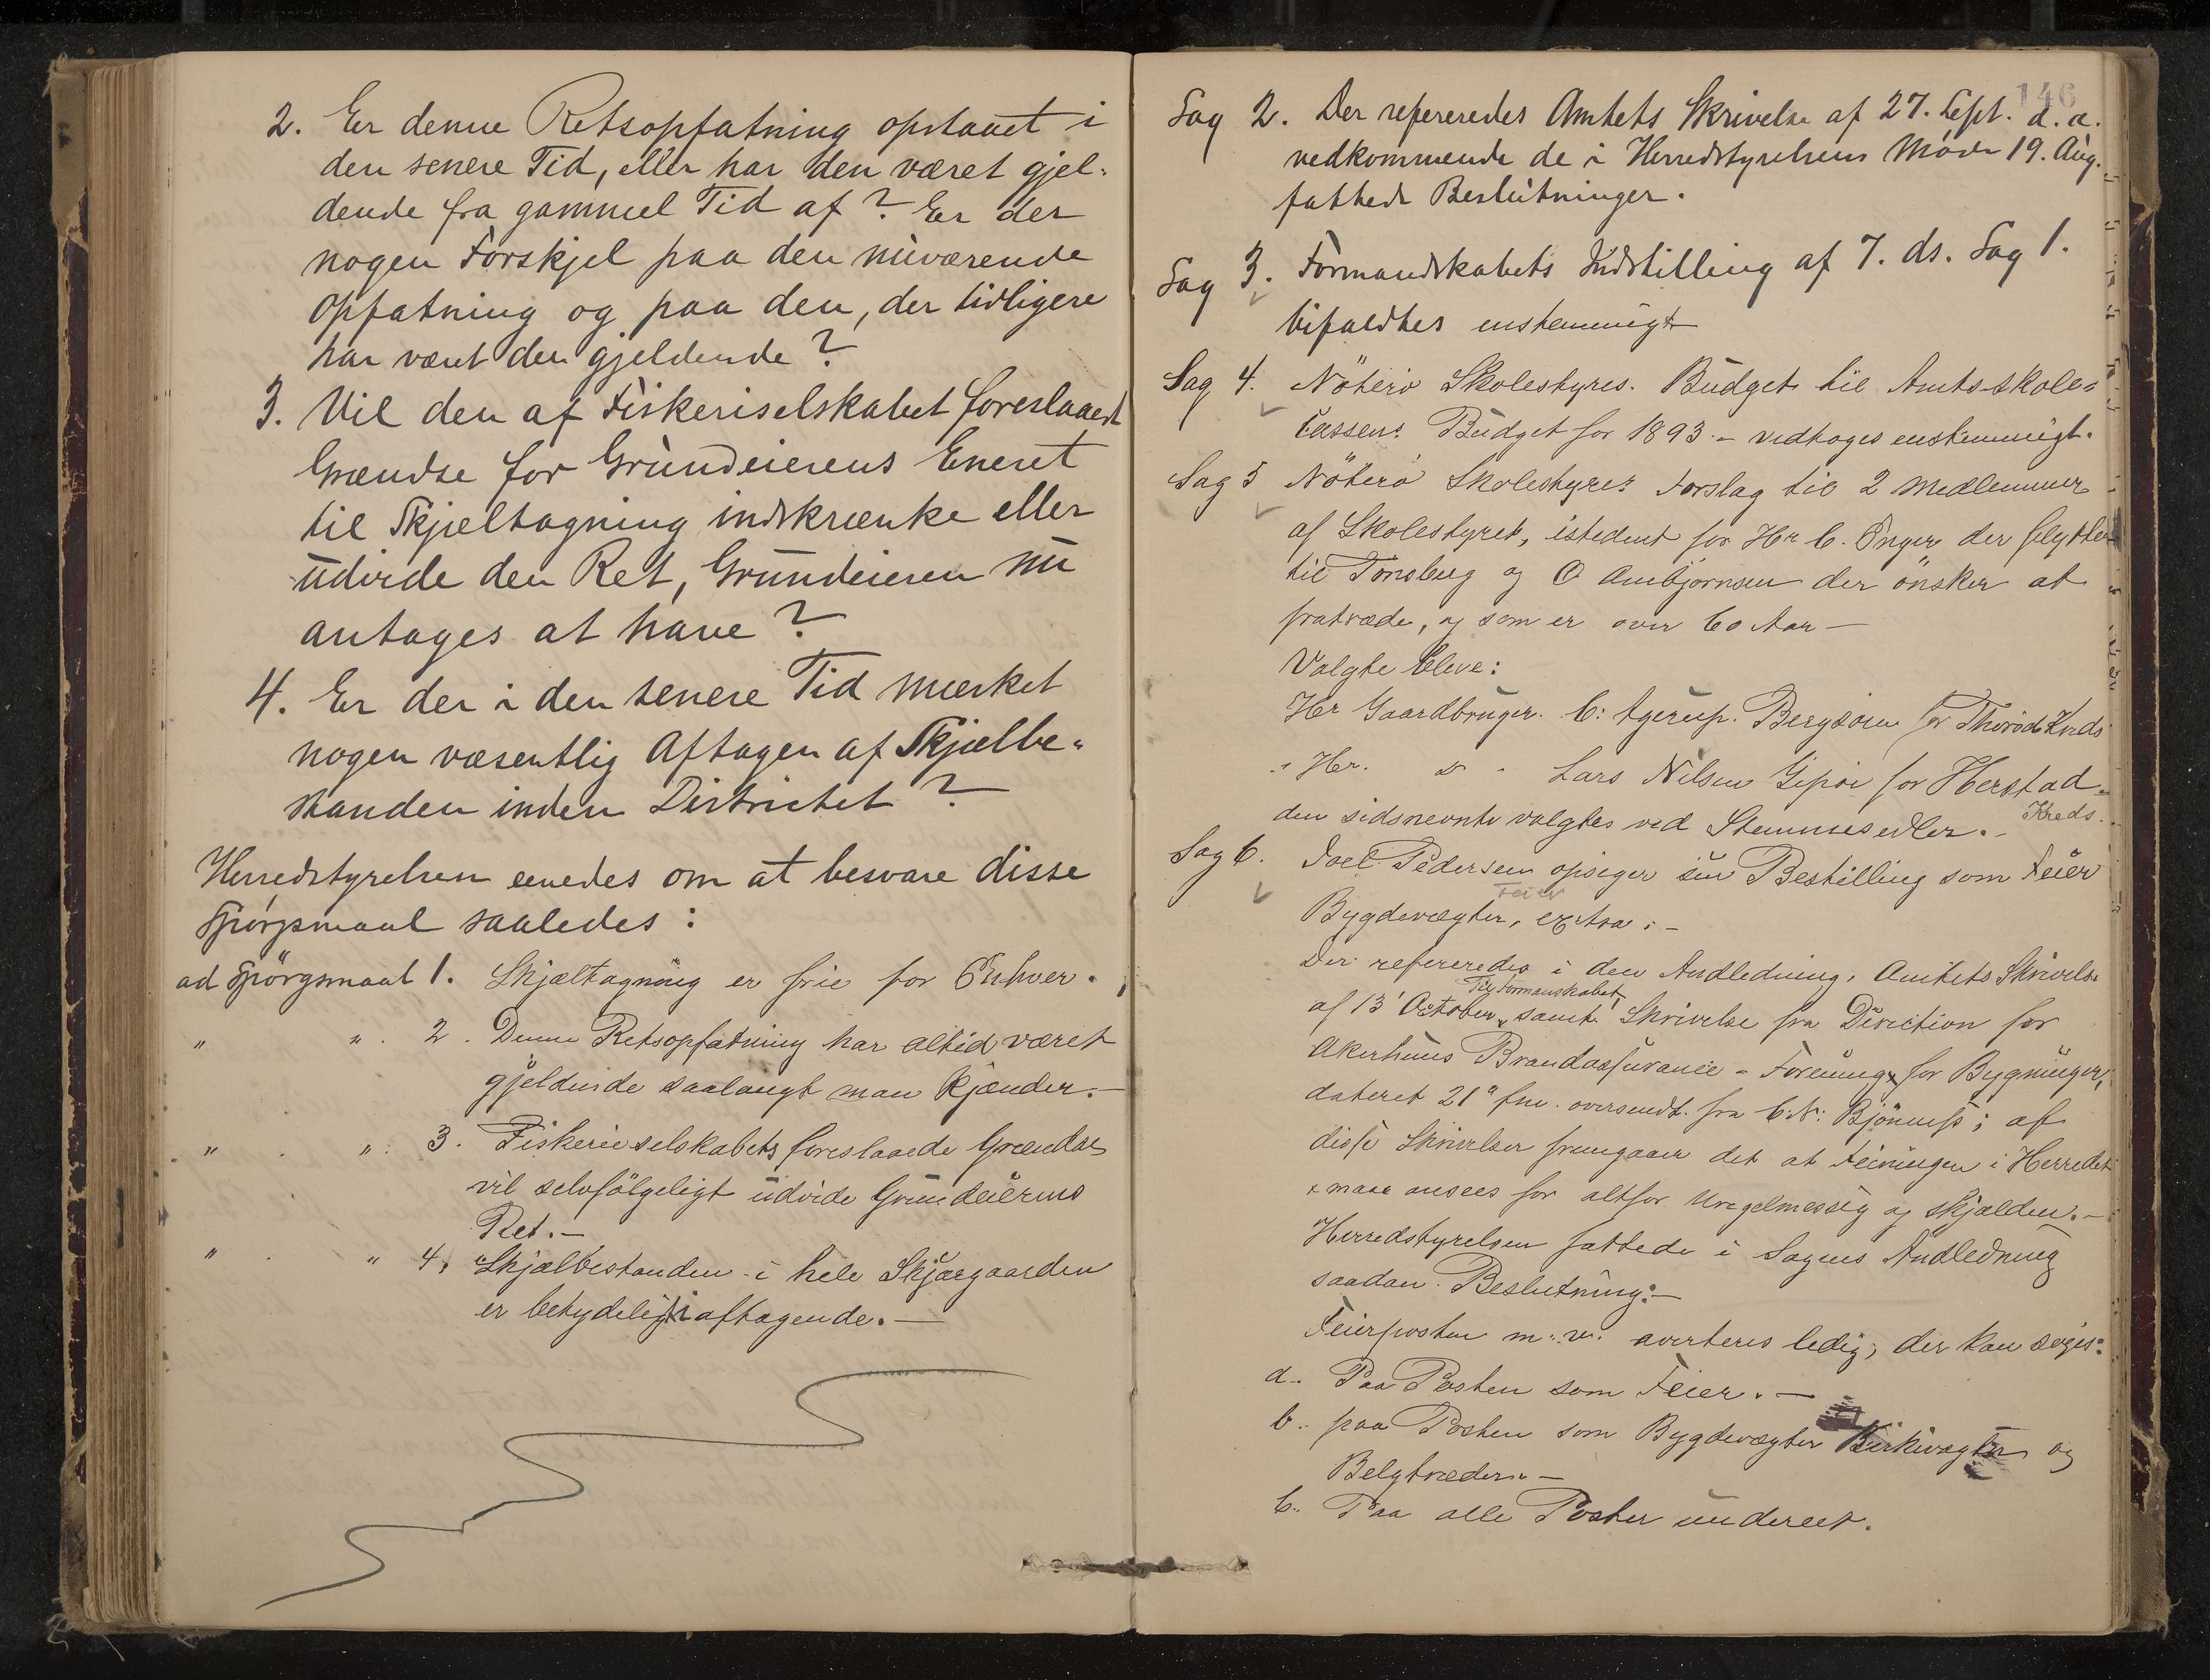 2. Er denne Retsopfatning opstaaet i
den senere Tid, eller har den været gjel-
dende fra gammel Tid af? Er der
nogen Forskjel paa den nuværende
Opfatning og paa den, der tidligere
har været den gjeldende?
3. Vil den af Fiskeriselskabet foreslaaede
Grændse for Grundeierens Eneret
til Skjæltagning indskrænke eller
udvide den Ret, Grundeieren nu
antages at have?
4. Er der i den senere Tid mærket
nogen væsentlig Aftagen af Skjælbe-
standen inden Districtet?
Herredstyrelsen enedes om at besvare disse
Spørgsmaal saaledes:
ad Spörgsmaal 1. Skjæltagning er frie for Enhver.
" " 2. Denne Retsopfatning har altid været
gjeldende saalangt man kjænder.-
" " 3. Fiskerieselskabets foreslaaede Grændse
vil selvfölgeligt udvide Grundeierens
Ret.-
" " 4. Skjælbestanden i hele Skjærgaarden
er betydelig i aftagende.-
146
Sag 2. Der refereredes Amtets Skrivelse af 27. Sept. d. a.
vedkommende de i Herredstyrelsens Møde 19. Aug.
fattede Beslutninger.
Sag 3. Formandskabets Indstilling af 7. ds. Sag 1.
bifaldtes enstemmigt
Sag 4. Nöterö Skolestyres Budget til Amtsskole-
cassens Budget for 1893 - vedtoges enstemmigt.
Sag 5 Nöterö Skolestyres Forslag til 2 Medlemmer
af Skolestyret, istedent for Hr C. Unger der flytter
til Tönsberg og O Ambjörnsen der önsker at
fratræde, og som er over 60 Aar -
Valgte bleve:
Hr Gaardbruger C. Agerup. Bergsoen for Thorød Kreds
" Hr. " Lars Nilsen Gipøe for Herstad
Kreds.
den sidsnevnte valgtes ved Stemmesedler.-
Sag 6. Joel Pedersen opsiger sin Bestilling som Feier
Feier
Bygdevægter, extra.-
Der refereredes i den Andledning, Amtets Skrivelse
Til Formanskabet
af 13' October, samt Skrivelse fra Direction for
Akerhuus Brandassurance-Forening for Bygninger,
dateret 21" fm. oversendt fra C. N. Bjönness; af
disse Skrivelser fremgaaer det at Feiningen i Herredet
maa ansees for altfor Uregelmessig og skjælden.-
Herredstyrelsen fattede i Sagens Andledning
saadan Beslutning:-
Feierposten m. v. averteres ledig, der kan søges:
a. Paa Posten som Feier.-
b. paa Posten som Bygdevægter Kirkevagter og
Belgtræder.-
c. Paa alle Poster underet.